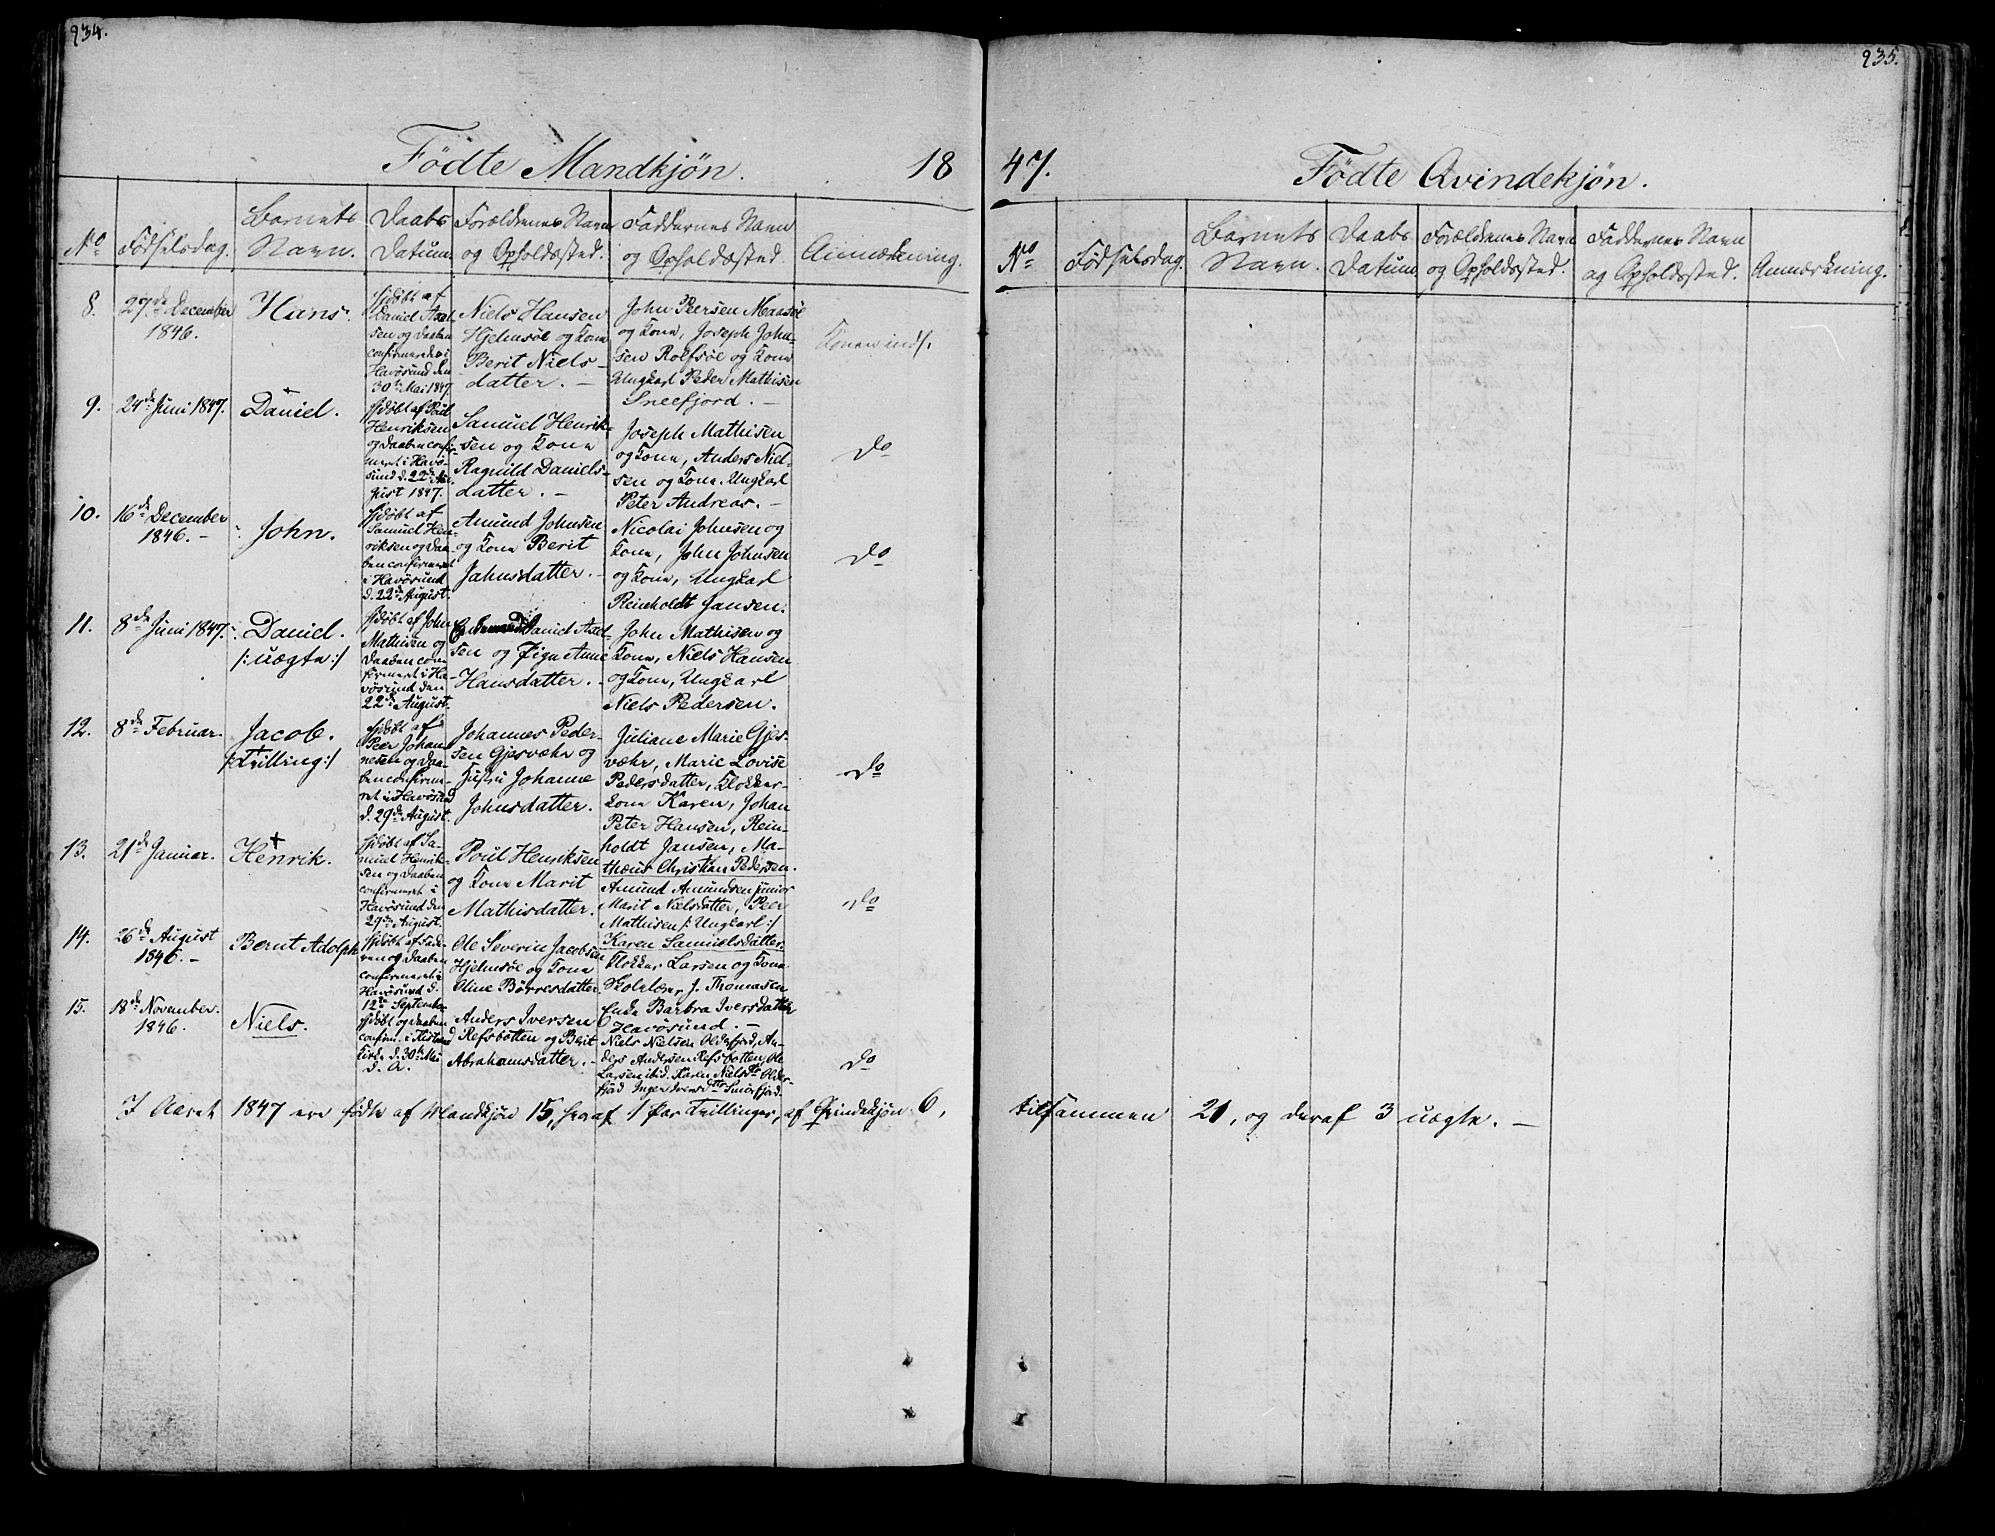 234.
Fødte Mandkjøn. 18
No Fødselsdag. Barnets Navn. Daabs Datum Forældrenes Navn og Opholdssted. Faddernes Navn og Opholdssted. Anmærkning.
8. 27de December 1846.
Hans.
hjdøbt af
Daniel Axel-
sen og Daaben
confirmeret i
Havøsund den
30te Mai 1847
Niels Hansen
Hjelmsøe og Kone
Berit Niels-
datter. –
John Peersen Maasøe
og Kone, Joseph John-
sen Rolfsøe og Kone
Ungkarl Peder Mathisen
Sneefjord. –
Konen inds.
9. 24de Juni 1847.
Daniel.
hjdøbt af Poul
Henriksen
og Daaben confir-
meret i Havø-
sund d. 22de Au-
gust 1847.
Samuel Henrik-
sen og Kone
Ragnild Daniels-
datter. –
Joseph Mathisen
og Kone, Anders Niel-
sen og Kone. Ungkarl
Peter Andreas. –
do
10. 16de December
1846. –
John.
hjdøbt af
Samuel Hen-
riksen og Daa-
ben confirmeret
i Havøsund
d. 22de August.
Amund Johnsen
og Kone Berit
Jahnsdatter. –
Nicolai Johnsen og
Kone, John Johnsen
og Kone, Ungkarl
Reinholdt Jansen.
do
11. 8de Juni 1847.
Daniel.
/: uægte :/
hjdøbt af John
Mathisen og
Daaben con-
firmeret i Ha-
vøsund den
22de August.
Daniel Axel-
sen og Pige Anne
Hansdatter. –
John Mathisen og
Kone, Niels Hansen
og Kone, Ungkarl
Niels Pedersen.
12. 8de Februar.
Jacob.
/: Tvilling :/
hjdøbt af
Peer Johan-
nesen og Daa-
ben confirme-
ret i Havøsund
d. 29de August.
Johannes Peder-
sen Gjesvæhr og
Hustru Johanne
Johnsdatter.
Juliane Marie Gjes-
væhr, Marie Lovise
Pedersdatter, Klokker-
kone Karen, Johan
Peter Hansen, Rein-
holdt Jansen, Ma-
thæus Christian Pedersen.
do
13. 21de Januar.
Henrik.
hjdøbt af Sa-
muel Henrik-
sen og Daaben
confirmeret i
Havøsund den
29de August.
Poul Henriksen
og Kone Marit
Mathisdatter.
Amund Amundsen junior
Marit Nielsdatter, Peer
Mathisen /: Ungkarl :/
Karen Samuelsdatter.
do
14. 26de August
1846. –
Bernt Adolph
ren og Daaben
confirmeret i
Havøsund d.
12te September
Ole Severin Jacobsen
Hjelmsøe og Kone
Oline Børresdatter.
Klokker Larsen og Kone
Skolelærer J. Thomasen
Enke Barbra Iversdatter
Havøsund. –
15. 18de November.
1846.
Niels.
hjdøbt og Daaben
confirm. i Kistrand
Kirke d. 30te Mai
d. A.
Anders Iversen
Refsbotten og Berit
Abrahamsdatter. –
Niels Nielsen Olderfjord, An-
ders Andersen Refsbotten, Ole
Larsen ibid. Karen Nielsdtr Older-
fjord Inger Iversdtr Smørfjord
do
I Aaret 1847 ere fødte af Mandkjøn 15, hvoraf 1 Par Tvillinger, af Qvindekjøn 6,
235.
47. Fødte Qvindekjøn.
No Fødselsdag. Barnets Navn. Daabs Datum Forældrenes Navn og Opholdssted. Faddernes Navn og Opholdssted. Anmærkning.
tilsammen 21, og deraf 3 uægte. –